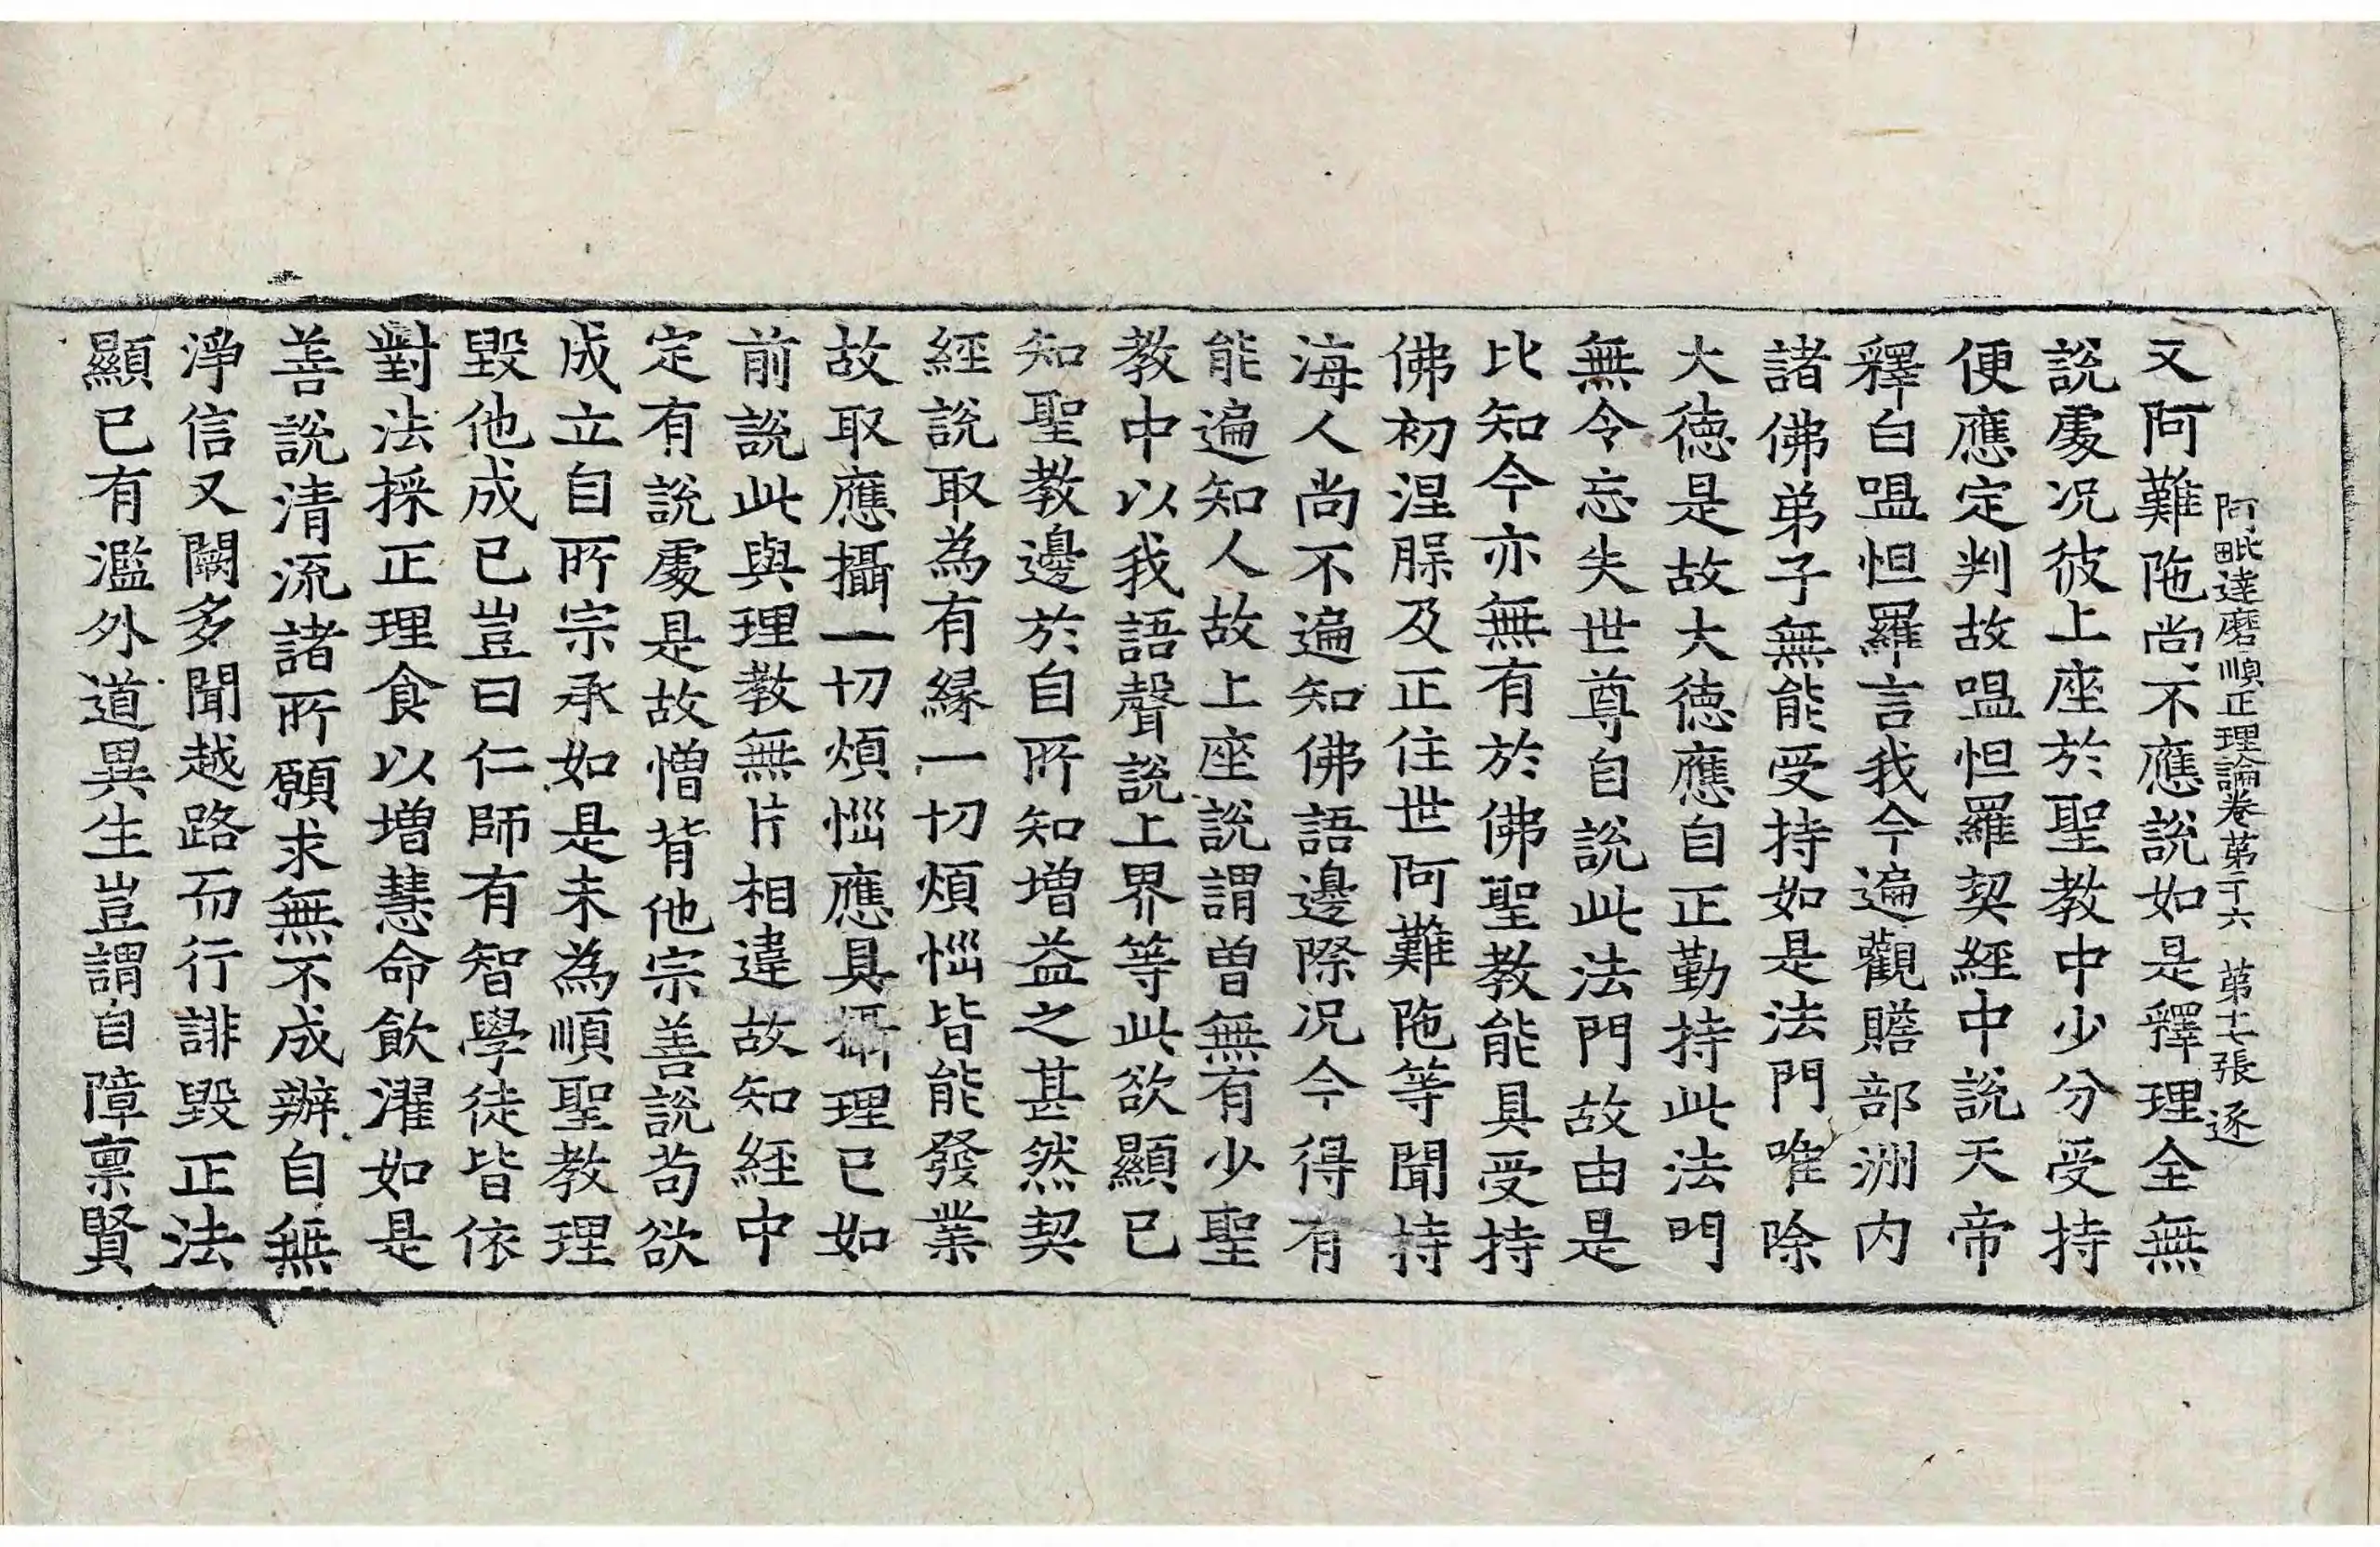 阿毗達磨順正理論卷第二十六 第十七張 逐
又阿難陁尚不應說如是釋理全無
說處况彼上座於聖教中少分受持
便應定判故嗢怛羅契經中說天帝
釋白嗢怛羅言我今遍觀贍部洲内
諸佛弟子無能受持如是法門唯除
大徳是故大徳應自正勤持此法門
無令忘失世尊自說此法門故由是
比知今亦無有於佛聖教能具受持
佛初涅腂及正住世阿難陁等聞持
海人尚不遍知佛語邊際况今得有
能遍知人故上座說謂曽無有少聖
教中以我語聲說上界等此欲顯已
知聖教邊於自所知增益之甚然契
經說取為有緣一切煩惱皆能發業
故取應攝一切煩惱應具攝理已如
前說此與理教無片相違故知經中
定有說處是故憎背他宗善說苟欲
成立自所宗承如是未為順聖教理
毀他成已豈曰仁師有智學徒皆依
對法採正理食以增慧命飲濯如是
善說清流諸所願求無不成辦自無
淨信又闕多聞越路而行誹毀正法
顯已有濫外道異生豈謂自障禀賢